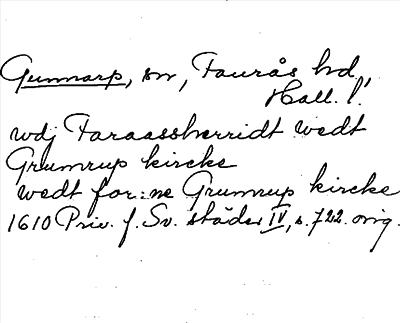 Gunnarp, sn, Faurås hd,
Hall. l.
udj Faraassherridt wedt
Grumrup kircke
wedt for:ne Grumrup kircke
1610 Priv. f. Sv. städer IV, s. 722. orig.